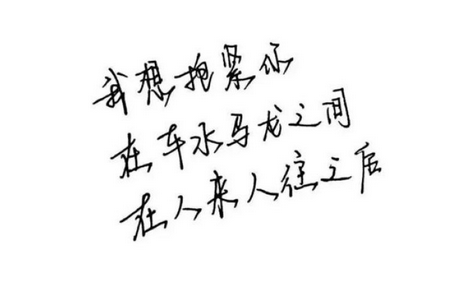 我想抱紧你
在车水马龙之间
在人来人往之后